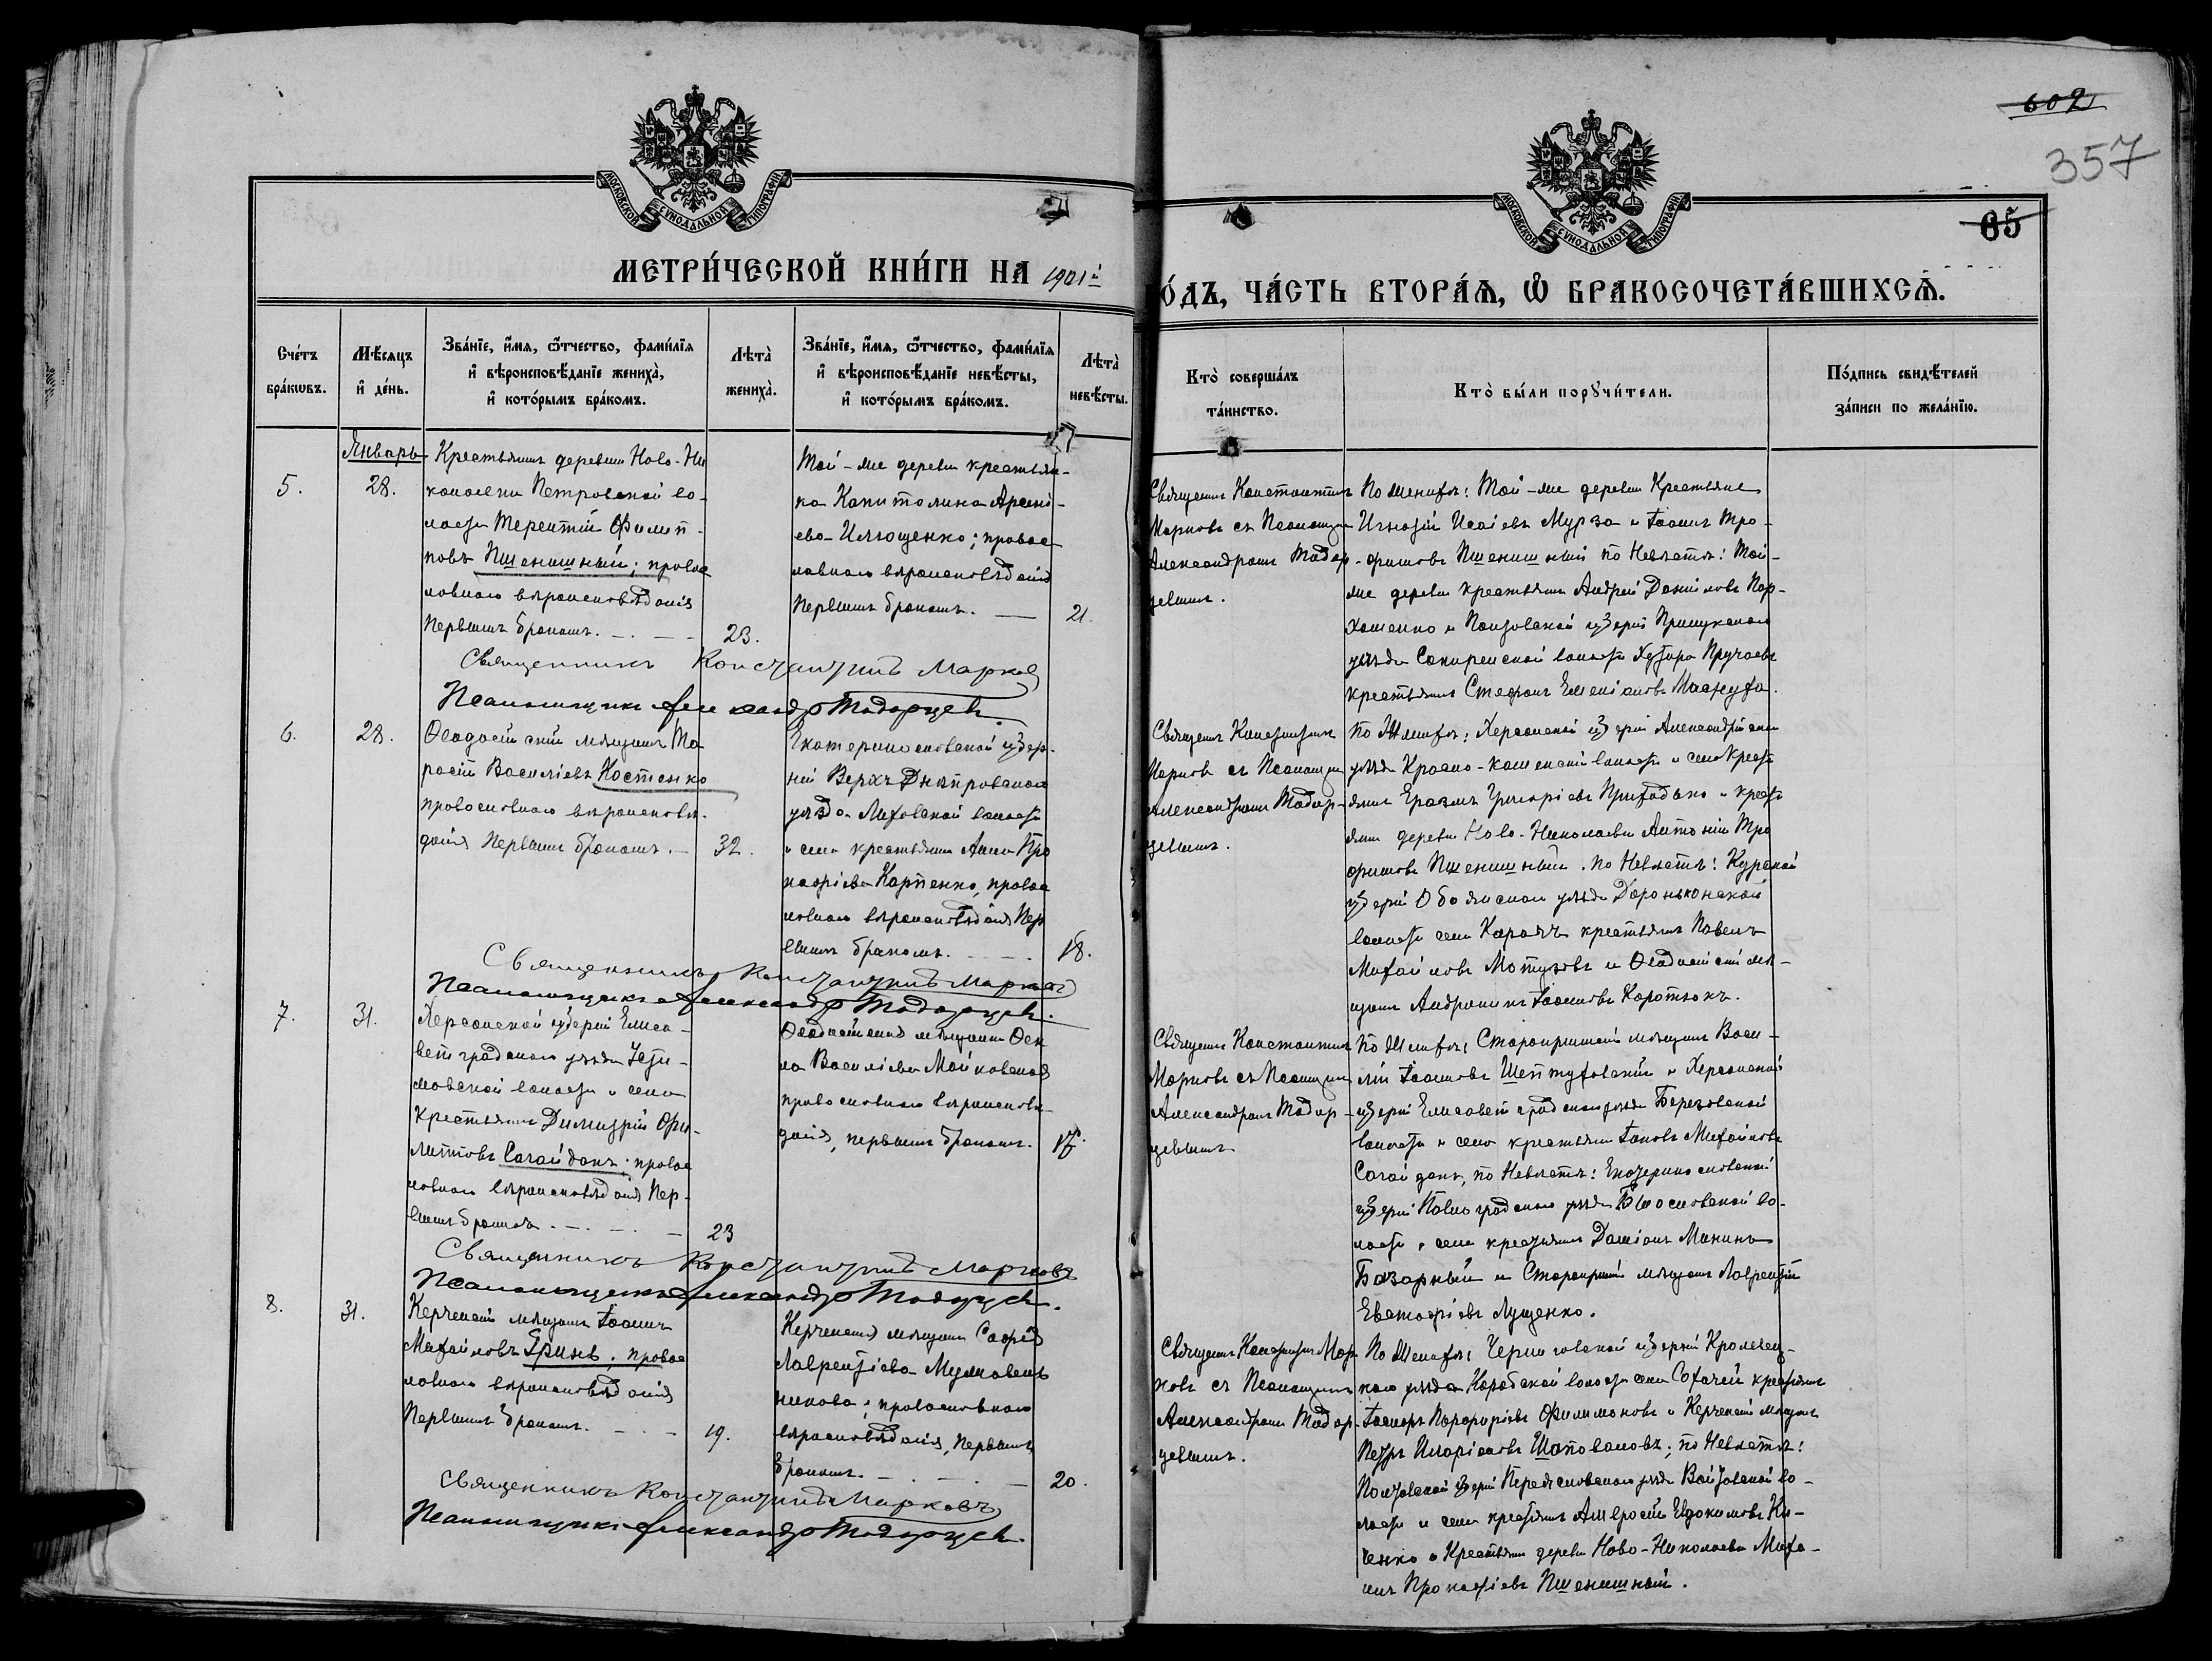 602
357
65
МОСКОВСКОЙ СУНОДАЛЬНОЙ ТИПОГРАФІИ
МОСКОВСКОЙ СУНОДАЛЬНОЙ ТИПОГРАФІИ
МЕТРИ́ЧЕСКОЙ КНИ́ГИ НА 1901й
О́ДЪ, ЧА́СТЬ ВТОРА́Ѧ, Ѡ БРАКОСОЧЕТА́ВШИХСѦ.
Сче́тъ бра́кωвъ.
Мѣ́сяцъ и҆ де́нь.
Зва́нїе, и҆́мя, ѻ҆́тчество, фами́лїя
и҆ вѣроисповѣ́данїе жениха̀,
и҆ кото́рымъ бра́комъ.
Лѣта̀ жениха̀.
Зва́нїе, и҆́мя, ѻ҆́тчество, фами́лїя
и҆ вѣроисповѣ́данїе невѣ́сты,
и҆ кото́рымъ бра́комъ.
Лѣта̀ невѣ́сты.
Кто̀ соверша́лъ та́инство.
Кто̀ бы́ли порꙋчи́тели.
По́дпись свидѣ́телей
за́писи по жела́нїю.
Январь
5.
28.
Крестьянинъ деревни Ново-Ни
колаевки Петровской во-
лости Терентій Филип-
повъ Пшенишный; правос
лавнаго вѣроисповѣданія
Первымъ бракомъ.
23.
Той-же деревни крестьян-
ка Капитолина Арсені-
ева Ильющенко; правос
лавнаго вѣроисповѣданія
Первымъ бракомъ.
21.
Священникъ Константинъ
Марковъ съ Псаломщик
Александромъ Тодор-
цевымъ.
По Жениху: Той-же деревни Крестьяне
Игнатій Исаіевъ Мурза и Іоаннъ Тро-
фимовъ Пшенишный по Невѣстѣ: Той-
же деревни крестьянинъ Андрей Даніиловъ Пар-
хоменко и Полтавской губерніи Прилукскаго
уѣзда Сокиренской волости Хутора
крестьянинъ Стефанъ
Священникъ Константинъ Марковъ
Псаломщикъ Александръ Тодорцевъ.
6.
28.
Ѳеодосійскій мѣщанинъ Та
расій Василіевъ Костенко
православнаго вѣроисповѣ-
данія Первымъ бракомъ.
32.
Екатеринославской губер-
ніи Верхъ Днѣпровскаго
уѣзда Лиховской волости
и села крестьянка Анна Про
кофіева Карпенко, правос
лавнаго вѣроисповѣданія Пер
вымъ бракомъ.
18.
Священникъ Константинъ
Марковъ съ Псаломщик
Александромъ Тодор-
цевымъ.
По Жениху: Херсонской губерніи Александрійскаго
уѣзда Красно-Каменской волости и села Крест
янинъ Еразмъ Григоріевъ Приходько и крест
янинъ деревни Ново-Николаевки Антоній Тро
фимовъ Пшенишный. по Невѣстѣ: Курской
губерніи Обоянскаго уѣзда
волости села крестьянинъ Павелъ
Михайловъ Мотузовъ и Ѳеодосійскій мѣ-
щанинъ Андроникъ Іоанновъ Коротюкъ.
Священникъ Константинъ Марковъ
Псаломщикъ Александръ Тодорцевъ.
7.
31.
Херсонской губерніи Елиса-
ветградскаго уѣзда Усти-
мовской волости и села
Крестьянинъ Димитрій Фи-
липповъ Сагайдакъ; правос
лавнаго вѣроисповѣданія Пер-
вымъ бракомъ.
23
Ѳеодосійская мѣщанка Ѳек
ла Василіева Майковская
православнаго вѣроисповѣ-
данія, первымъ бракомъ.
17.
Священникъ Константинъ
Марковъ съ Псаломщик
Александромъ Тодор-
цевымъ
По Жениху: Старокрымскій мѣщанинъ Васи-
лій Іоанновъ Шептуховскій и Херсонской
губерніи Елисаветградскаго уѣзда Березовской
волости и села крестьянинъ Іаковъ Михайловъ
Сагайдакъ, по Невѣстѣ: Екатеринославской
губерніи Павлоградскаго уѣзда Богословской во-
лости и села крестьянинъ Даміанъ Мининъ
Базарный и Старокрымскій мѣщанинъ Лаврентій
Евстафіевъ Лущенко.
Священникъ Константинъ Марковъ
Псаломщикъ Александръ Тодорцевъ.
8.
31.
Керченскій мѣщанинъ Іоаннъ
Михайловъ Гринь; правос
лавнаго вѣроисповѣданія
Первымъ бракомъ.
19.
Керченская мѣщанка Софія
Лаврентіева
православнаго
вѣроисповѣданія, Первымъ
бракомъ.
20.
Священникъ Константинъ Мар
ковъ съ Псаломщикомъ
Александромъ Тодор-
цевымъ.
По Жениху: Черниговской губерніи Кролевец-
каго уѣзда Коробской волости села крестьянинъ
Порфиріевъ Филимоновъ и Керченскій мѣщанинъ
Петръ Иларіоновъ Шаповаловъ; по Невѣстѣ:
Полтавской губерніи Переяславскаго уѣзда Войтовской во-
лости и села крестьянинъ Амвросій Евдокимовъ Ки-
ченко и Крестьянинъ деревни Ново-Николаевки Миха-
илъ Прокофіевъ Пшенишный.
Священникъ Константинъ Марковъ
Псаломщикъ Александръ Тодорцевъ.